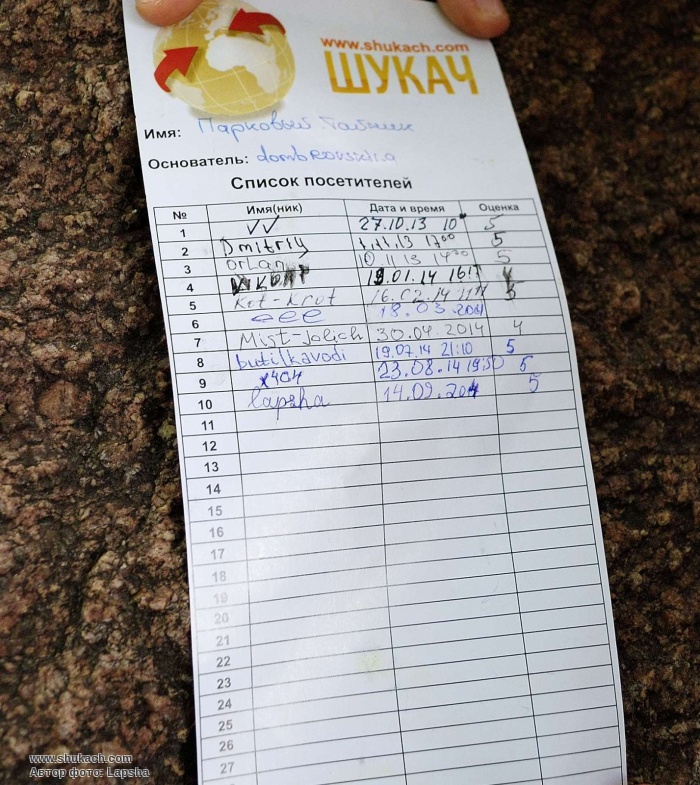 www.shukach.com
ШУКАЧ
Имя: Парковый тайник
Основатель:
Список посетителей
№ Имя(ник) Дата и время Оценка
1 VV 27.10.13 10 5
2 Dmitriy 1.11.13 17⁰⁰ 5
3 Orlan 10.11.13 14³⁰ 5
4 19.01.14
5 Kot-Krot 16.02.14
6 eee 18.03
7 Mist-Jolich 30.04.2014 4
8 butilkavodi 19.07.14 21:10 5
9 x404 23.08.14 19:50 5
10 lapsha 14.09.2014 5
11
12
13
14
15
16
17
18
19
20
21
22
23
24
25
26
27
www.shukach.com
Автор фото: Lapsha